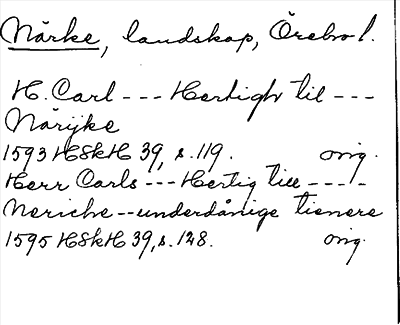 Närke, landskap, Örebro l.
H. Carl --- Hertigh til ---
Närijke
1593 HSkH 39, s. 119. orig.
Herr Carls --- Hertig till ----
Neriche -- underdånige tienere
1595 HSkH 39, s. 128. orig.